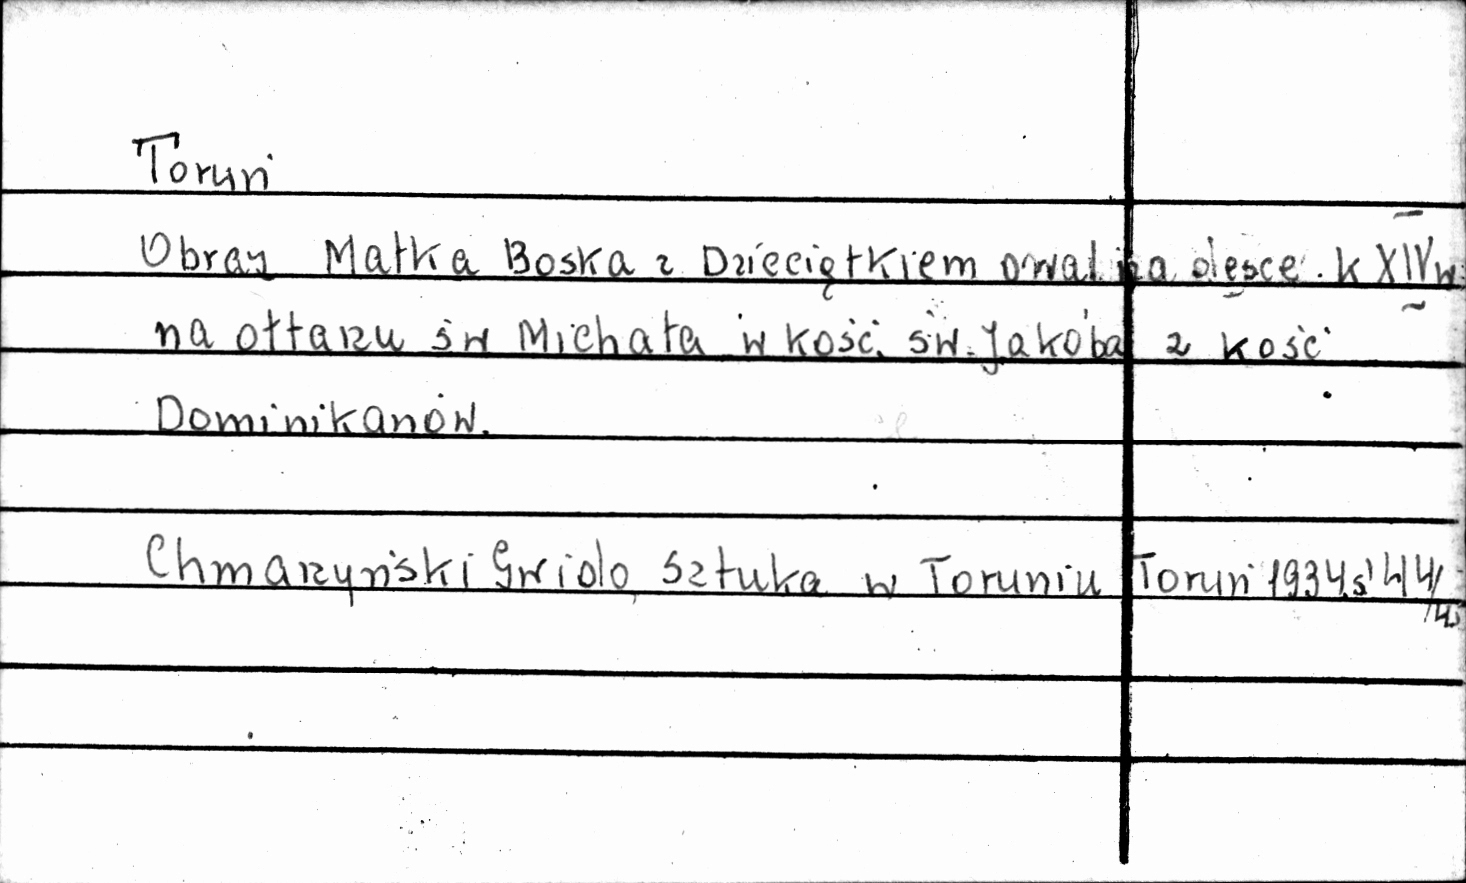 Toruń
Obraz Matka Boska z Dzieciątkiem owal na desce. k XIV w.
na ołtarzu św Michała w kość. św. Jakóba z kość
Dominikanów.
Chmarzyński Gwido Sztuka w Toruniu Toruń 1934 s. 44/